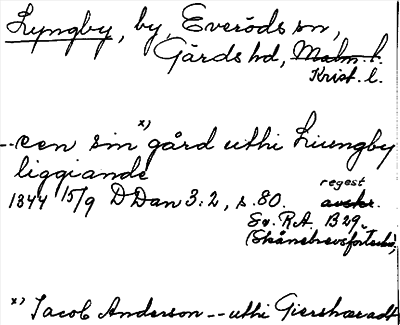 Lyngby, by, Everöds sn,
Gärds hd, Malm. l.
Krist. l.
--een sin x) gård uthi Liungby
liggiande
regest
1344 15/9 DDan 3:2, s. 80. avskr.
Sv. R.A. B 29
(Skånebrevsförteckn.)
x) Jacob Anderson -- uthi Giershæradt